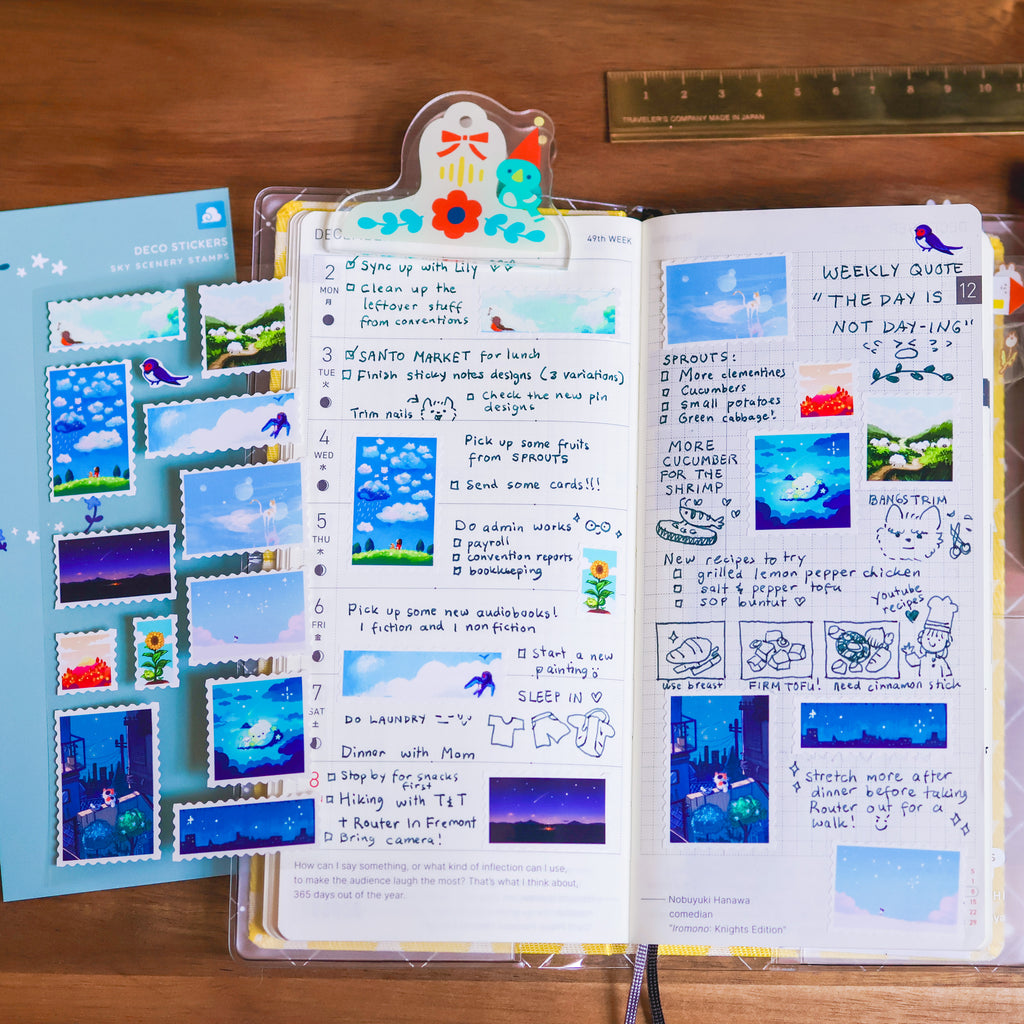 1 2 3 4 5 6 7 8 9 10 11
TRAVELER'S COMPANY MADE IN JAPAN
DECO STICKERS
SKY SCENERY STAMPS
49th WEEK
2
MON
月
Sync up with Lily
Clean up the
leftover stuff
from conventions
3
TUE
火
SANTO MARKET for lunch
Finish sticky notes designs (3 variations)
Trim nails
Check the new pin
designs
4
WED
水
Pick up some fruits
from SPROUTS
Send some cards!!!
5
THU
木
Do admin works
payroll
convention reports
bookkeeping
6
FRI
金
Pick up some new audiobooks!
1 fiction and 1 nonfiction
Start a new
painting
7
SAT
土
SLEEP IN
DO LAUNDRY
Dinner with Mom
8
Stop by for snacks
first
Hiking with T&T
+ Router in Fremont
Bring camera!
How can I say something, or what kind of inflection can I use,
to make the audience laugh the most? That's what I think about,
365 days out of the year.
WEEKLY QUOTE
"THE DAY IS
NOT DAY-ING"
12
SPROUTS:
More clementines
Cucumbers
small potatoes
Green cabbage!
MORE
CUCUMBER
FOR THE
SHRIMP
BANGS TRIM
New recipes to try
grilled lemon pepper chicken
salt & pepper tofu
SOP buntut
Youtube
recipes
use breast
FIRM TOFU!
need cinnamon stick
Stretch more after
dinner before taking
Router out for a
walk!
Nobuyuki Hanawa
comedian
"Iromono: Knights Edition"
S
1
8
15
22
29